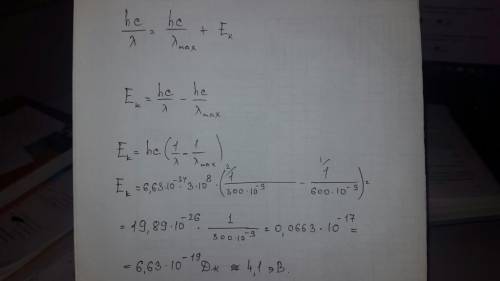 hc/λ = hc/λmax + Eк
Eк = hc/λ - hc/λmax
Eк = hc(1/λ - 1/λmax)
Eк = 6,63·10^-34·3·10^8·(²⁾1/300·10^-9 - ¹⁾1/600·10^-9) =
= 19,89·10^-26 · 1/300·10^-9 = 0,0663·10^-17 =
= 6,63·10^-19 Дж ≈ 4,1 эВ.